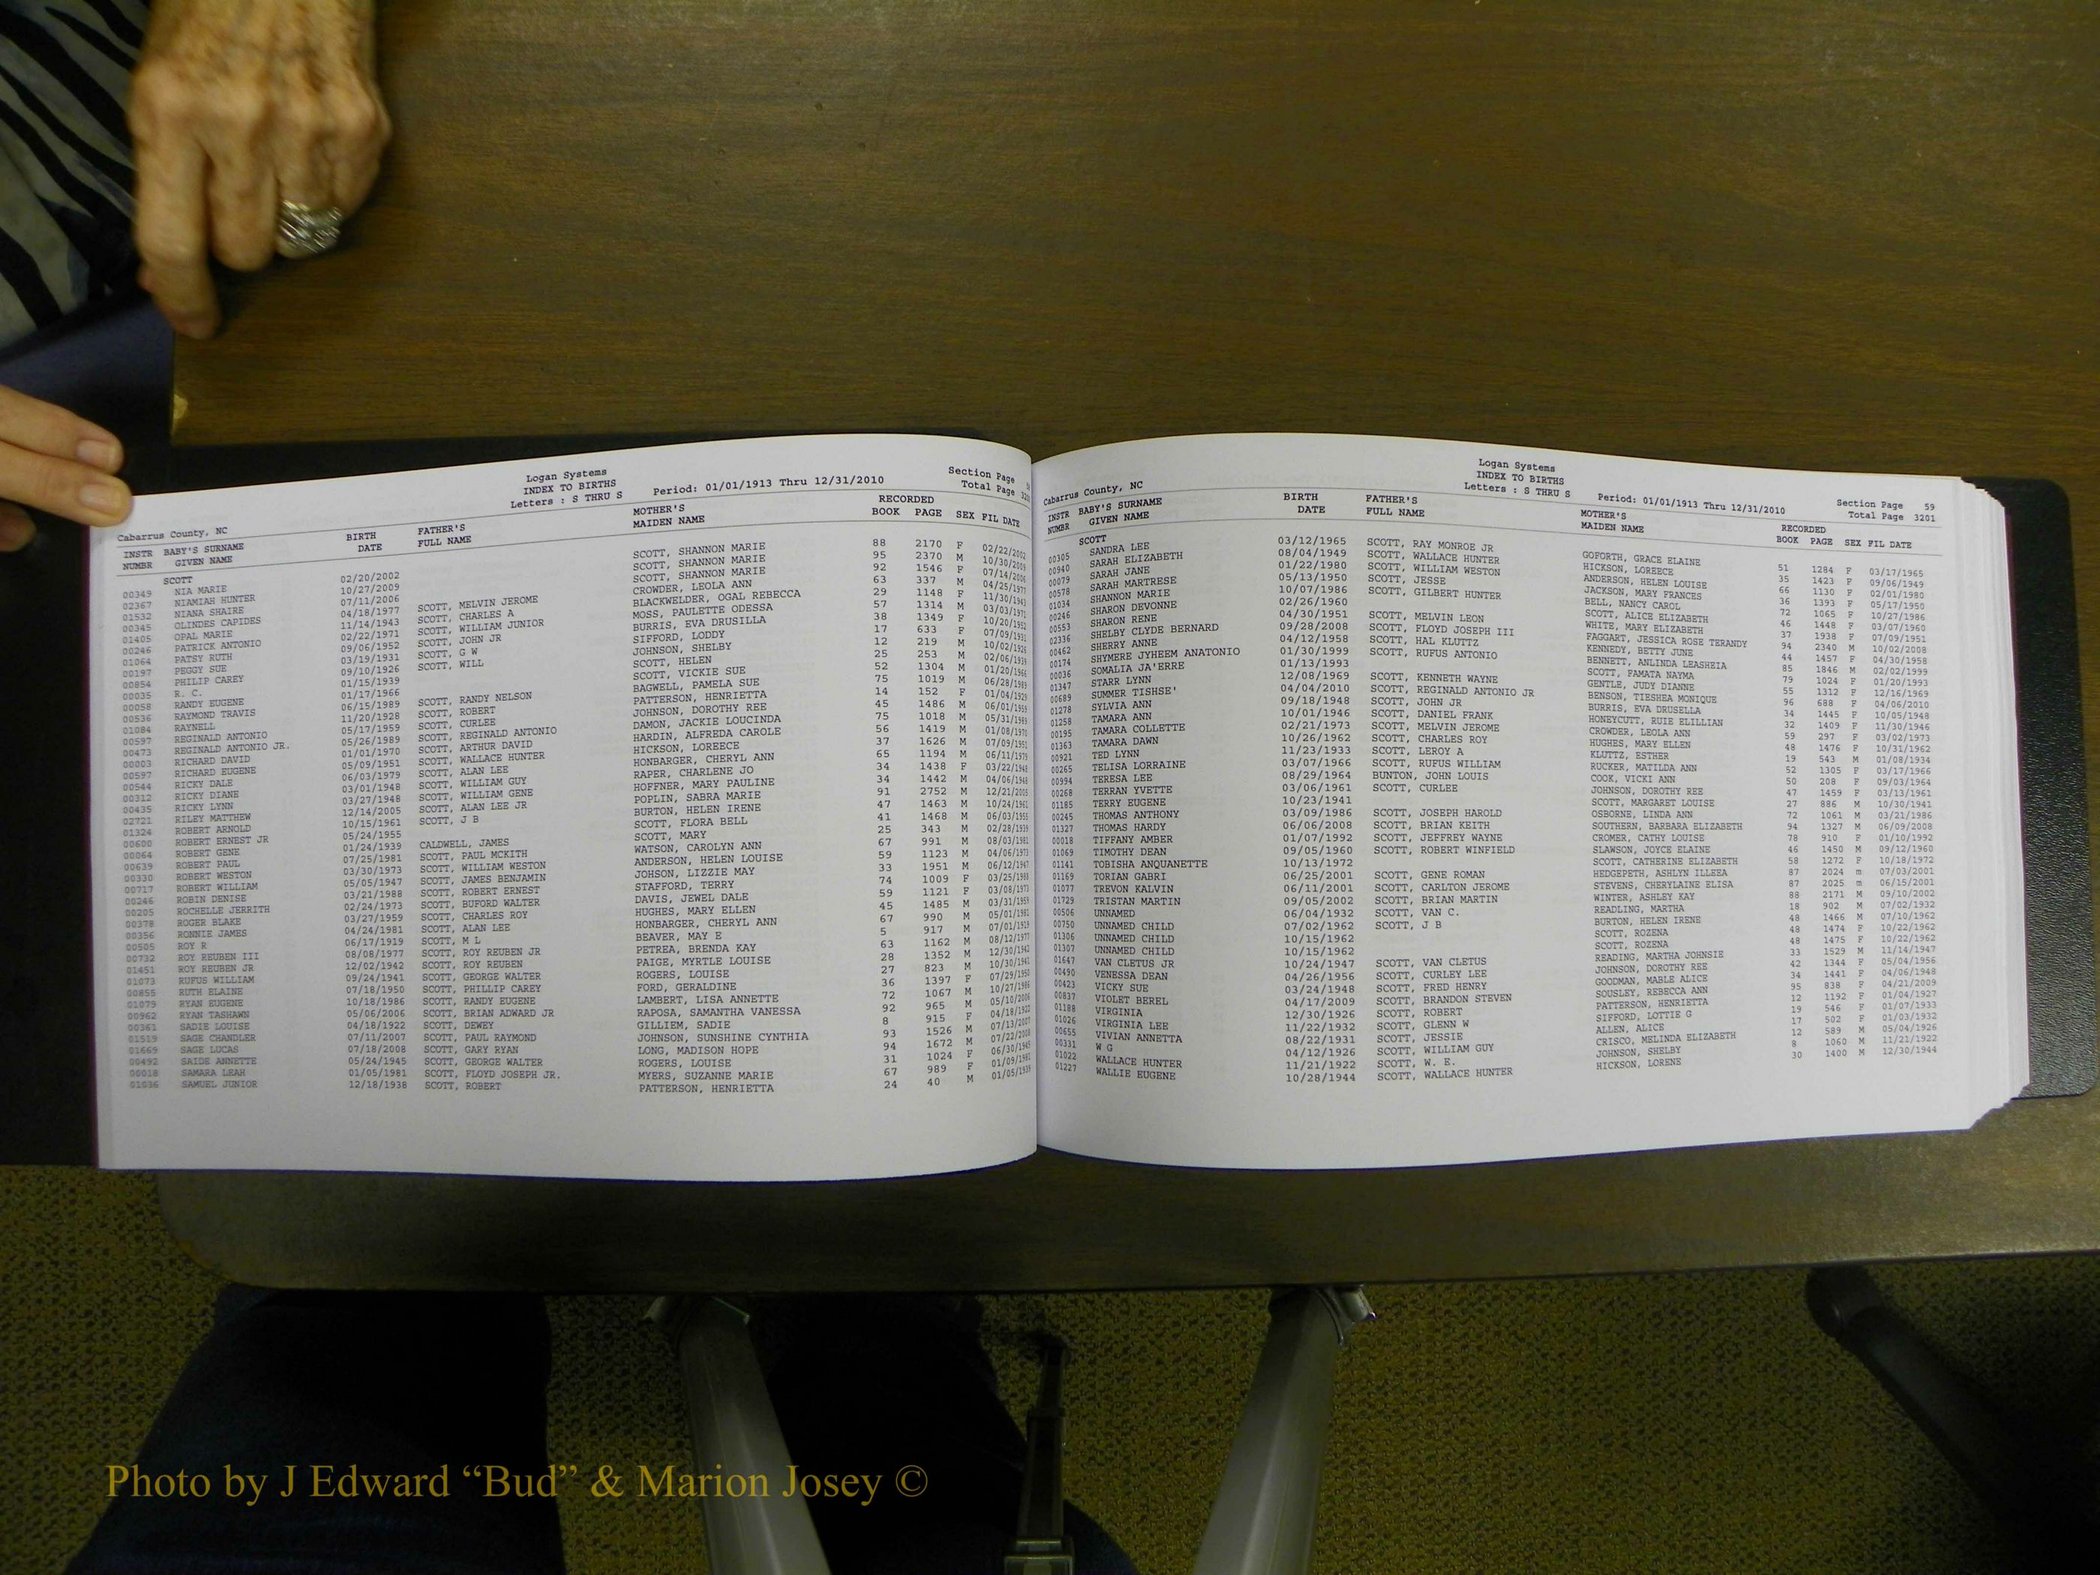 Logan Systems
INDEX TO BIRTHS
Letters : S THRU S Period: 01/01/1913 Thru 12/31/2010
Section Page
Total Page
Cabarrus County, NC
INSTR BABY'S SURNAME BIRTH FATHER'S MOTHER'S RECORDED
NUMBR GIVEN NAME DATE FULL NAME MAIDEN NAME BOOK PAGE SEX FIL DATE
SCOTT
00349 NIA MARIE 02/20/2002 SCOTT, SHANNON MARIE 88 2170 F 02/22/2002
02367 NIAMIAH HUNTER 10/27/2009 SCOTT, SHANNON MARIE 95 2370 M 10/30/2009
01532 NIANA SHAIRE 07/11/2006 SCOTT, SHANNON MARIE 92 1546 F 07/14/2006
00345 OLINDES CAPIDES 04/18/1977 SCOTT, MELVIN JEROME CROWDER, LEOLA ANN 63 337 M 04/25/1977
01405 OPAL MARIE 11/14/1943 SCOTT, CHARLES A BLACKWELDER, OGAL REBECCA 29 1148 F 11/30/1943
00246 PATRICK ANTONIO 02/22/1971 SCOTT, WILLIAM JUNIOR MOSS, PAULETTE ODESSA 57 1314 M 03/03/1971
01064 PATSY RUTH 09/06/1952 SCOTT, JOHN JR BURRIS, EVA DRUSILLA 38 1349 F 10/20/1952
00197 PEGGY SUE 03/19/1931 SCOTT, G W SIFFORD, LODDY 17 633 F 07/09/1931
00854 PHILIP CAREY 09/10/1926 SCOTT, WILL JOHNSON, SHELBY 12 219 M 10/02/1926
00035 R. C. 01/15/1939 SCOTT, HELEN 25 253 M 02/06/1939
00058 RANDY EUGENE 01/17/1966 SCOTT, VICKIE SUE 52 1304 M 01/20/1966
00536 RAYMOND TRAVIS 06/15/1989 SCOTT, RANDY NELSON BAGWELL, PAMELA SUE 75 1019 M 06/28/1989
01084 RAYNELL 11/20/1928 SCOTT, ROBERT PATTERSON, HENRIETTA 14 152 F 01/04/1929
00597 REGINALD ANTONIO 05/17/1959 SCOTT, CURLEE JOHNSON, DOROTHY REE 45 1486 M 06/01/1959
00473 REGINALD ANTONIO JR. 05/26/1989 SCOTT, REGINALD ANTONIO DAMON, JACKIE LOUCINDA 75 1018 M 05/31/1989
00003 RICHARD DAVID 01/01/1970 SCOTT, ARTHUR DAVID HARDIN, ALFREDA CAROLE 56 1419 M 01/08/1970
00597 RICHARD EUGENE 05/09/1951 SCOTT, WALLACE HUNTER HICKSON, LOREECE 37 1626 M 07/09/1951
00544 RICKY DALE 06/03/1979 SCOTT, ALAN LEE HONBARGER, CHERYL ANN 65 1194 M 06/11/1979
00312 RICKY DIANE 03/01/1948 SCOTT, WILLIAM GUY RAPER, CHARLENE JO 34 1438 F 03/22/1948
00435 RICKY LYNN 03/27/1948 SCOTT, WILLIAM GENE HOFFNER, MARY PAULINE 34 1442 M 04/06/1948
02721 RILEY MATTHEW 12/14/2005 SCOTT, ALAN LEE JR POPLIN, SABRA MARIE 91 2752 M 12/21/2005
01324 ROBERT ARNOLD 10/15/1961 SCOTT, J B BURTON, HELEN IRENE 47 1463 M 10/24/1961
00600 ROBERT ERNEST JR 05/24/1955 SCOTT, FLORA BELL 41 1468 M 06/03/1955
00064 ROBERT GENE 01/24/1939 CALDWELL, JAMES SCOTT, MARY 25 343 M 02/28/1939
00639 ROBERT PAUL 07/25/1981 SCOTT, PAUL MCKITH WATSON, CAROLYN ANN 67 991 M 08/03/1981
00330 ROBERT WESTON 03/30/1973 SCOTT, WILLIAM WESTON ANDERSON, HELEN LOUISE 59 1123 M 04/06/1973
00717 ROBERT WILLIAM 05/05/1947 SCOTT, JAMES BENJAMIN JOHSON, LIZZIE MAY 33 1951 M 06/12/1947
00246 ROBIN DENISE 03/21/1988 SCOTT, ROBERT ERNEST STAFFORD, TERRY 74 1009 F 03/25/1988
00205 ROCHELLE JERRITH 02/24/1973 SCOTT, BUFORD WALTER DAVIS, JEWEL DALE 59 1121 F 03/08/1973
00378 ROGER BLAKE 03/27/1959 SCOTT, CHARLES ROY HUGHES, MARY ELLEN 45 1485 M 03/31/1959
00356 RONNIE JAMES 04/24/1981 SCOTT, ALAN LEE HONBARGER, CHERYL ANN 67 990 M 05/01/1981
00505 ROY R 06/17/1919 SCOTT, M L BEAVER, MAY E 5 917 M 07/01/1919
00732 ROY REUBEN III 08/08/1977 SCOTT, ROY REUBEN JR PETREA, BRENDA KAY 63 1162 M 08/12/1977
01451 ROY REUBEN JR 12/02/1942 SCOTT, ROY REUBEN PAIGE, MYRTLE LOUISE 28 1352 M 12/30/1942
01073 RUFUS WILLIAM 09/24/1941 SCOTT, GEORGE WALTER ROGERS, LOUISE 27 823 M 10/30/1941
00855 RUTH ELAINE 07/18/1950 SCOTT, PHILLIP CAREY FORD, GERALDINE 36 1397 F 07/29/1950
01079 RYAN EUGENE 10/18/1986 SCOTT, RANDY EUGENE LAMBERT, LISA ANNETTE 72 1067 M 10/27/1986
00962 RYAN TASHAWN 05/06/2006 SCOTT, BRIAN ADWARD JR RAPOSA, SAMANTHA VANESSA 92 965 M 05/10/2006
00361 SADIE LOUISE 04/18/1922 SCOTT, DEWEY GILLIEM, SADIE 8 915 F 04/18/1922
01519 SAGE CHANDLER 07/11/2007 SCOTT, PAUL RAYMOND JOHNSON, SUNSHINE CYNTHIA 93 1526 M 07/13/2007
01669 SAGE LUCAS 07/18/2008 SCOTT, GARY RYAN LONG, MADISON HOPE 94 1672 M 07/22/2008
00492 SAIDE ANNETTE 05/24/1945 SCOTT, GEORGE WALTER ROGERS, LOUISE 31 1024 F 06/30/1945
00018 SAMARA LEAH 01/05/1981 SCOTT, FLOYD JOSEPH JR. MYERS, SUZANNE MARIE 67 989 F 01/09/1981
01036 SAMUEL JUNIOR 12/18/1938 SCOTT, ROBERT PATTERSON, HENRIETTA 24 40 M 01/05/1939
Logan Systems
INDEX TO BIRTHS
Letters : S THRU S Period: 01/01/1913 Thru 12/31/2010
Section Page 59
Total Page 3201
Cabarrus County, NC
INSTR BABY'S SURNAME BIRTH FATHER'S MOTHER'S RECORDED
NUMBR GIVEN NAME DATE FULL NAME MAIDEN NAME BOOK PAGE SEX FIL DATE
SCOTT
00305 SANDRA LEE 03/12/1965 SCOTT, RAY MONROE JR GOFORTH, GRACE ELAINE 51 1284 F 03/17/1965
00940 SARAH ELIZABETH 08/04/1949 SCOTT, WALLACE HUNTER HICKSON, LOREECE 35 1423 F 09/06/1949
00079 SARAH JANE 01/22/1980 SCOTT, WILLIAM WESTON ANDERSON, HELEN LOUISE 66 1130 F 02/01/1980
00578 SARAH MARTRESE 05/13/1950 SCOTT, JESSE JACKSON, MARY FRANCES 36 1393 F 05/17/1950
01034 SHANNON MARIE 10/07/1986 SCOTT, GILBERT HUNTER BELL, NANCY CAROL 72 1065 F 10/27/1986
00246 SHARON DEVONNE 02/26/1960 SCOTT, ALICE ELIZABETH 46 1448 F 03/07/1960
00553 SHARON RENE 04/30/1951 SCOTT, MELVIN LEON WHITE, MARY ELIZABETH 37 1938 F 07/09/1951
02336 SHELBY CLYDE BERNARD 09/28/2008 SCOTT, FLOYD JOSEPH III FAGGART, JESSICA ROSE TERANDY 94 2340 M 10/02/2008
00462 SHERRY ANNE 04/12/1958 SCOTT, HAL KLUTTZ KENNEDY, BETTY JUNE 44 1457 F 04/30/1958
00174 SHYMERE JYHEEM ANATONIO 01/30/1999 SCOTT, RUFUS ANTONIO BENNETT, ANLINDA LEASHEIA 85 1846 M 02/02/1999
00036 SOMALIA JA'ERRE 01/13/1993 SCOTT, FAMATA NAYMA 79 1024 F 01/20/1993
01347 STARR LYNN 12/08/1969 SCOTT, KENNETH WAYNE GENTLE, JUDY DIANNE 55 1312 F 12/16/1969
00689 SUMMER TISHSE' 04/04/2010 SCOTT, REGINALD ANTONIO JR BENSON, TIESHEA MONIQUE 96 688 F 04/06/2010
01278 SYLVIA ANN 09/18/1948 SCOTT, JOHN JR BURRIS, EVA DRUSELLA 34 1445 F 10/05/1948
01258 TAMARA ANN 10/01/1946 SCOTT, DANIEL FRANK HONEYCUTT, RUIE ELILLIAN 32 1409 F 11/30/1946
00195 TAMARA COLLETTE 02/21/1973 SCOTT, MELVIN JEROME CROWDER, LEOLA ANN 59 297 F 03/02/1973
01363 TAMARA DAWN 10/26/1962 SCOTT, CHARLES ROY HUGHES, MARY ELLEN 48 1476 F 10/31/1962
00921 TED LYNN 11/23/1933 SCOTT, LEROY A KLUTTZ, ESTHER 19 543 M 01/08/1934
00265 TELISA LORRAINE 03/07/1966 SCOTT, RUFUS WILLIAM RUCKER, MATILDA ANN 52 1305 F 03/17/1966
00994 TERESA LEE 08/29/1964 BUNTON, JOHN LOUIS COOK, VICKI ANN 50 208 F 09/03/1964
00268 TERRAN YVETTE 03/06/1961 SCOTT, CURLEE JOHNSON, DOROTHY REE 47 1459 F 03/13/1961
01185 TERRY EUGENE 10/23/1941 SCOTT, MARGARET LOUISE 27 886 M 10/30/1941
00245 THOMAS ANTHONY 03/09/1986 SCOTT, JOSEPH HAROLD OSBORNE, LINDA ANN 72 1061 M 03/21/1986
01327 THOMAS HARDY 06/06/2008 SCOTT, BRIAN KEITH SOUTHERN, BARBARA ELIZABETH 94 1327 M 06/09/2008
00018 TIFFANY AMBER 01/07/1992 SCOTT, JEFFREY WAYNE CROMER, CATHY LOUISE 78 910 F 01/10/1992
01069 TIMOTHY DEAN 09/05/1960 SCOTT, ROBERT WINFIELD SLAWSON, JOYCE ELAINE 46 1450 M 09/12/1960
01141 TOBISHA ANQUANETTE 10/13/1972 SCOTT, CATHERINE ELIZABETH 58 1272 F 10/18/1972
01169 TORIAN GABRI 06/25/2001 SCOTT, GENE ROMAN HEDGEPETH, ASHLYN ILLEEA 87 2024 m 07/03/2001
01077 TREVON KALVIN 06/11/2001 SCOTT, CARLTON JEROME STEVENS, CHERYLAINE ELISA 87 2025 m 06/15/2001
01729 TRISTAN MARTIN 09/05/2002 SCOTT, BRIAN MARTIN WINTER, ASHLEY KAY 88 2171 M 09/10/2002
00506 UNNAMED 06/04/1932 SCOTT, VAN C. READLING, MARTHA 18 902 M 07/02/1932
00750 UNNAMED CHILD 07/02/1962 SCOTT, J B BURTON, HELEN IRENE 48 1466 M 07/10/1962
01306 UNNAMED CHILD 10/15/1962 SCOTT, ROZENA 48 1474 F 10/22/1962
01307 UNNAMED CHILD 10/15/1962 SCOTT, ROZENA 48 1475 F 10/22/1962
01647 VAN CLETUS JR 10/24/1947 SCOTT, VAN CLETUS READING, MARTHA JOHNSIE 33 1529 M 11/14/1947
00490 VENESSA DEAN 04/26/1956 SCOTT, CURLEY LEE JOHNSON, DOROTHY REE 42 1344 F 05/04/1956
00423 VICKY SUE 03/24/1948 SCOTT, FRED HENRY GOODMAN, MABLE ALICE 34 1441 F 04/06/1948
00837 VIOLET BEREL 04/17/2009 SCOTT, BRANDON STEVEN SOUSLEY, REBECCA ANN 95 838 F 04/21/2009
01188 VIRGINIA 12/30/1926 SCOTT, ROBERT PATTERSON, HENRIETTA 12 1192 F 01/04/1927
01026 VIRGINIA LEE 11/22/1932 SCOTT, GLENN W SIFFORD, LOTTIE G 19 546 F 01/07/1933
00655 VIVIAN ANNETTA 08/22/1931 SCOTT, JESSIE ALLEN, ALICE 17 502 F 01/03/1932
00331 W G 04/12/1926 SCOTT, WILLIAM GUY CRISCO, MELINDA ELIZABETH 12 589 M 05/04/1926
01022 WALLACE HUNTER 11/21/1922 SCOTT, W. E. JOHNSON, SHELBY 8 1060 M 11/21/1922
01227 WALLIE EUGENE 10/28/1944 SCOTT, WALLACE HUNTER HICKSON, LORENE 30 1400 M 12/30/1944
Photo by J Edward “Bud” & Marion Josey ©